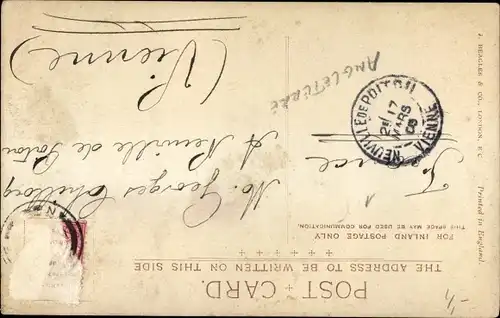 POST CARD.
THE ADDRESS TO BE WRITTEN ON THIS SIDE
FOR INLAND POSTAGE ONLY
THIS SPACE MAY BE USED FOR COMMUNICATION.
Mr. Georges
A Neuville de Poitou
(Vienne)
France
ANGLETERRE
NEUVILLE DE POITOU
17
MARS
VIENNE
J. BEAGLES & CO., LONDON, E.C.
Printed in England.